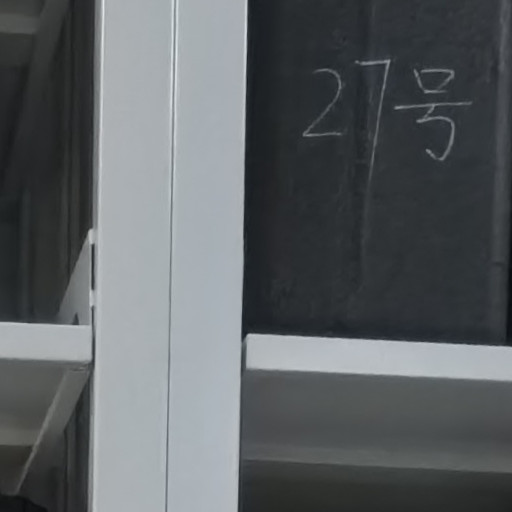 27号